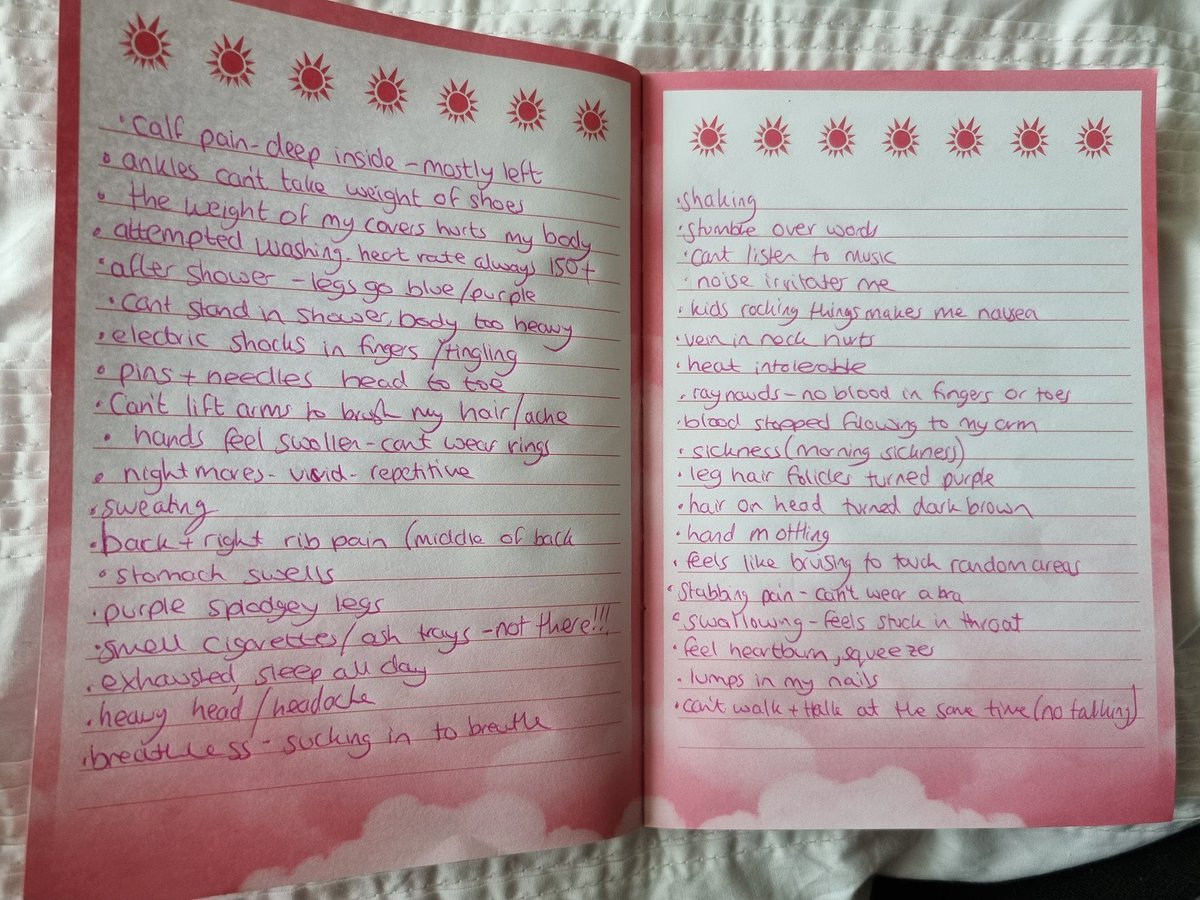 • calf pain - deep inside - mostly left
• ankles can't take weight of shoes
• the weight of my covers hurts my body
• attempted washing - heart rate always 150+
• after shower - legs go blue/purple
• cant stand in shower, body too heavy
• electric shocks in fingers/tingling
• pins + needles head to toe
• Can't lift arms to brush my hair/ache
• hands feel swollen - cant wear rings
• nightmares - vivid - repetitive
• sweating
• back + right rib pain (middle of back
• stomach swells
• purple splodgey legs
• smell cigarettes/ash trays - not there!!!
• exhausted, sleep all day
• heavy head/headache
• breathless - sucking in to breathe
• shaking
• stumble over words
• cant listen to music
• noise irritates me
• kids rocking things makes me nausea
• vein in neck hurts
• heat intolerable
• raynauds - no blood in fingers or toes
• blood stopped filowing to my arm
• sickness (morning sickness)
• leg hair folicles turned purple
• hair on head turned dark brown
• hand mottling
• feels like bruising to touch random areas
• Stabbing pain - can't wear a bra
• swallowing - feels stuck in throat
• feel heartburn, squeezes
• lumps in my nails
• can't walk + talk at the same time (no talking)